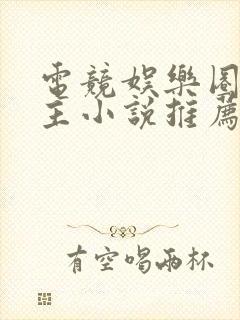 電競娛樂圈
主小說推薦
有空喝兩杯